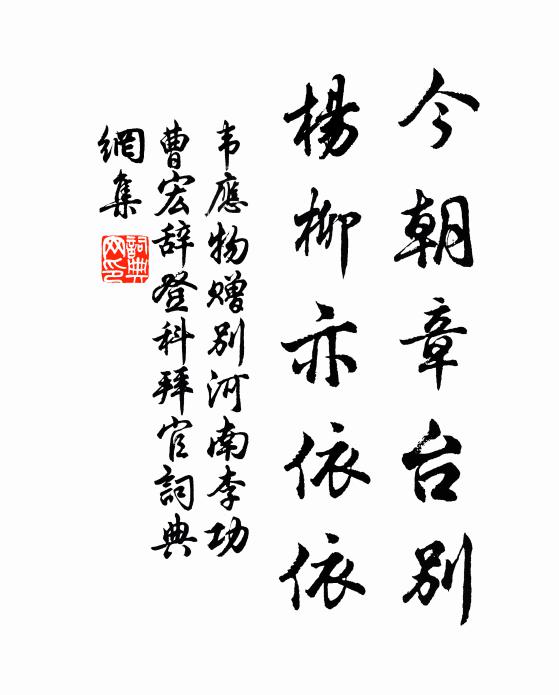 今朝章台别
楊柳亦依依
韦應物赠别河南李功
曹宏辞登科拜官詞典
網集
詞典網印